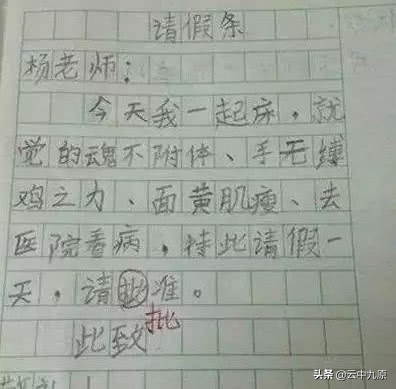 请假条
杨老师：
今天我一起床，就
觉的魂不附体、手无缚
鸡之力、面黄肌瘦、去
医院看病，持此请假一
天，请此准。
批
此致
头条 @云中九原